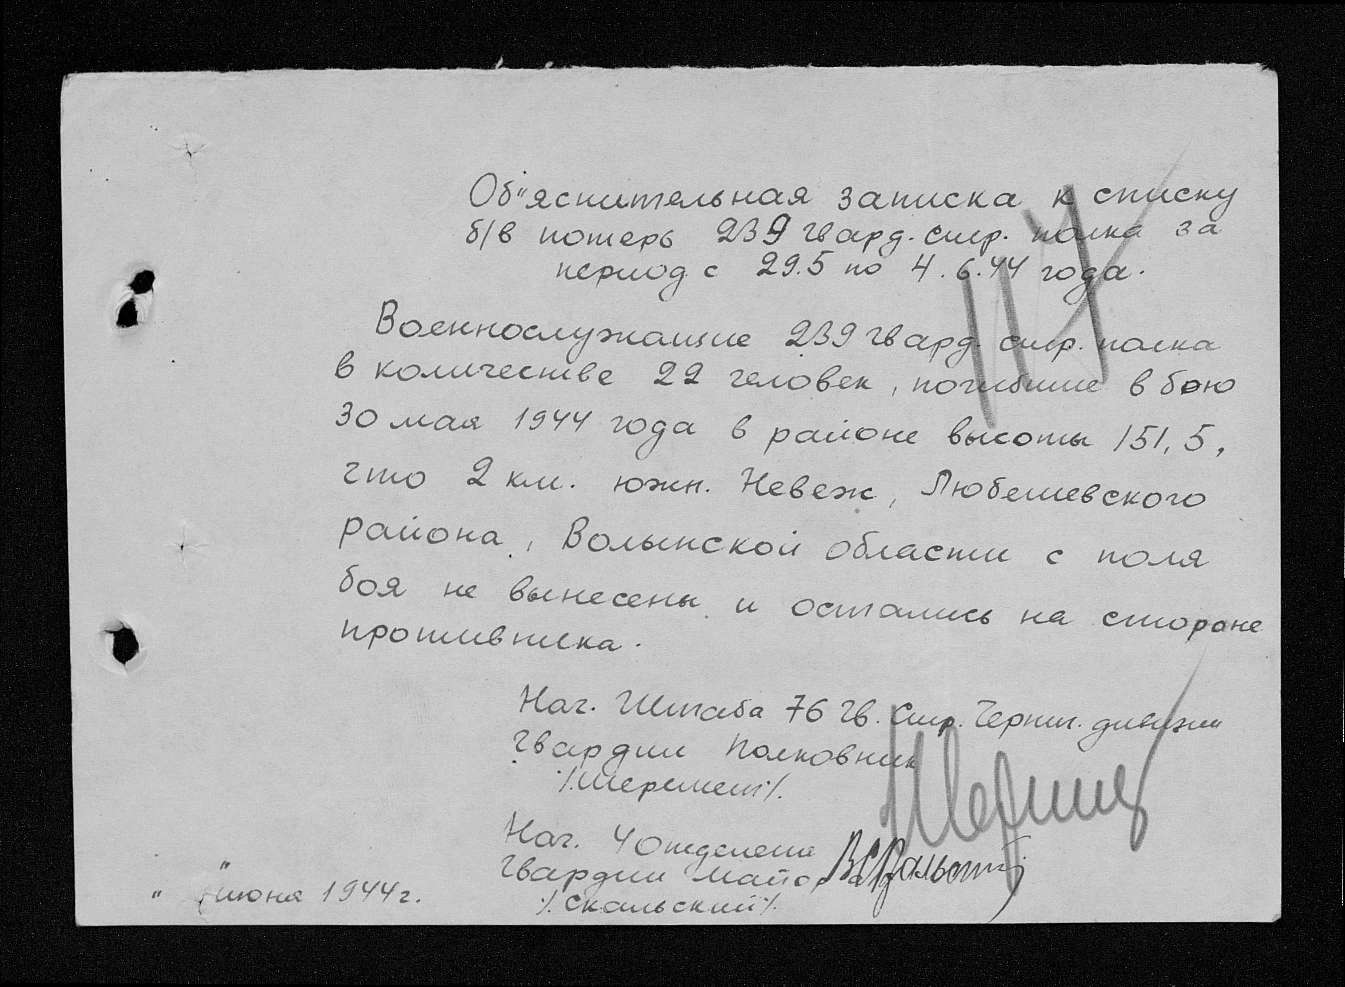 Об"яснительная записка к списку
б/в потерь 239 гвард. стр. полка за
период с 29.5 по 4.6.44 года.
Военнослужащие 239 гвард. стр. полка
в количестве 22 человек, погибшие в бою
30 мая 1944 года в районе высоты 151,5,
что 2 км. южн. Невеж, Любешевского
района, Волынской области с поля
боя не вынесены и остались на стороне
противника.
Нач. Штаба 76 гв. Стр. Черниг. дивизии
Гвардии Полковник
/.Шеремет./.
Нач. 4 Отделения
Гвардии Майор
/.Скальский/.
" " июня 1944 г.